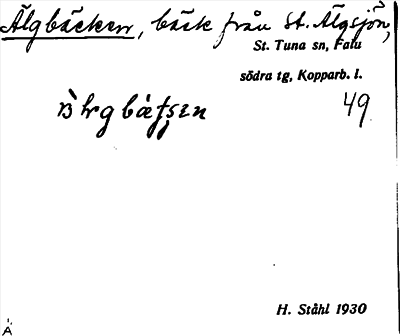 Älgbäcken, bäck från St. Älgsjön,
St. Tuna sn, Falu
södra tg, Kopparb. l.
49
H. Ståhl 1930
Ä